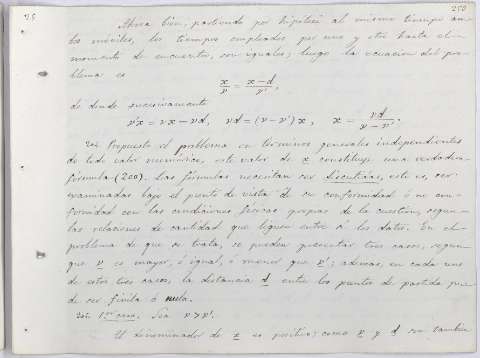 Ahora bien, partiendo por hipótesis al mismo tiempo am-
bos móviles, los tiempos empleados por uno y otro hasta el
momento de encuentro, son iguales; luego la ecuación del pro-
blema es
x/v = x-d/v',
de donde sucesivamente
v'x = vx - vd, vd = (v - v')x, x = vd/v-v'.
Propuesto el problema en términos generales independientes
de todo valor numérico, este valor de x constituye una verdadera
fórmula (200). Las fórmulas necesitan ser discutidas, esto es, ser
examinadas bajo el punto de vista de su conformidad ó no con-
formidad con las condiciones físicas propias de la cuestión, según
las relaciones de cantidad que liguen entre sí los datos. En el
problema de que se trata, se pueden presentar tres casos, según
que v es mayor, ó igual, ó menor que v'; ademas, en cada uno
de estos tres casos, la distancia d entre los puntos de partida pue-
de ser finita ó nula.
1er caso. Sea v > v'.
El denominador de x es positivo; como v y d son tambien